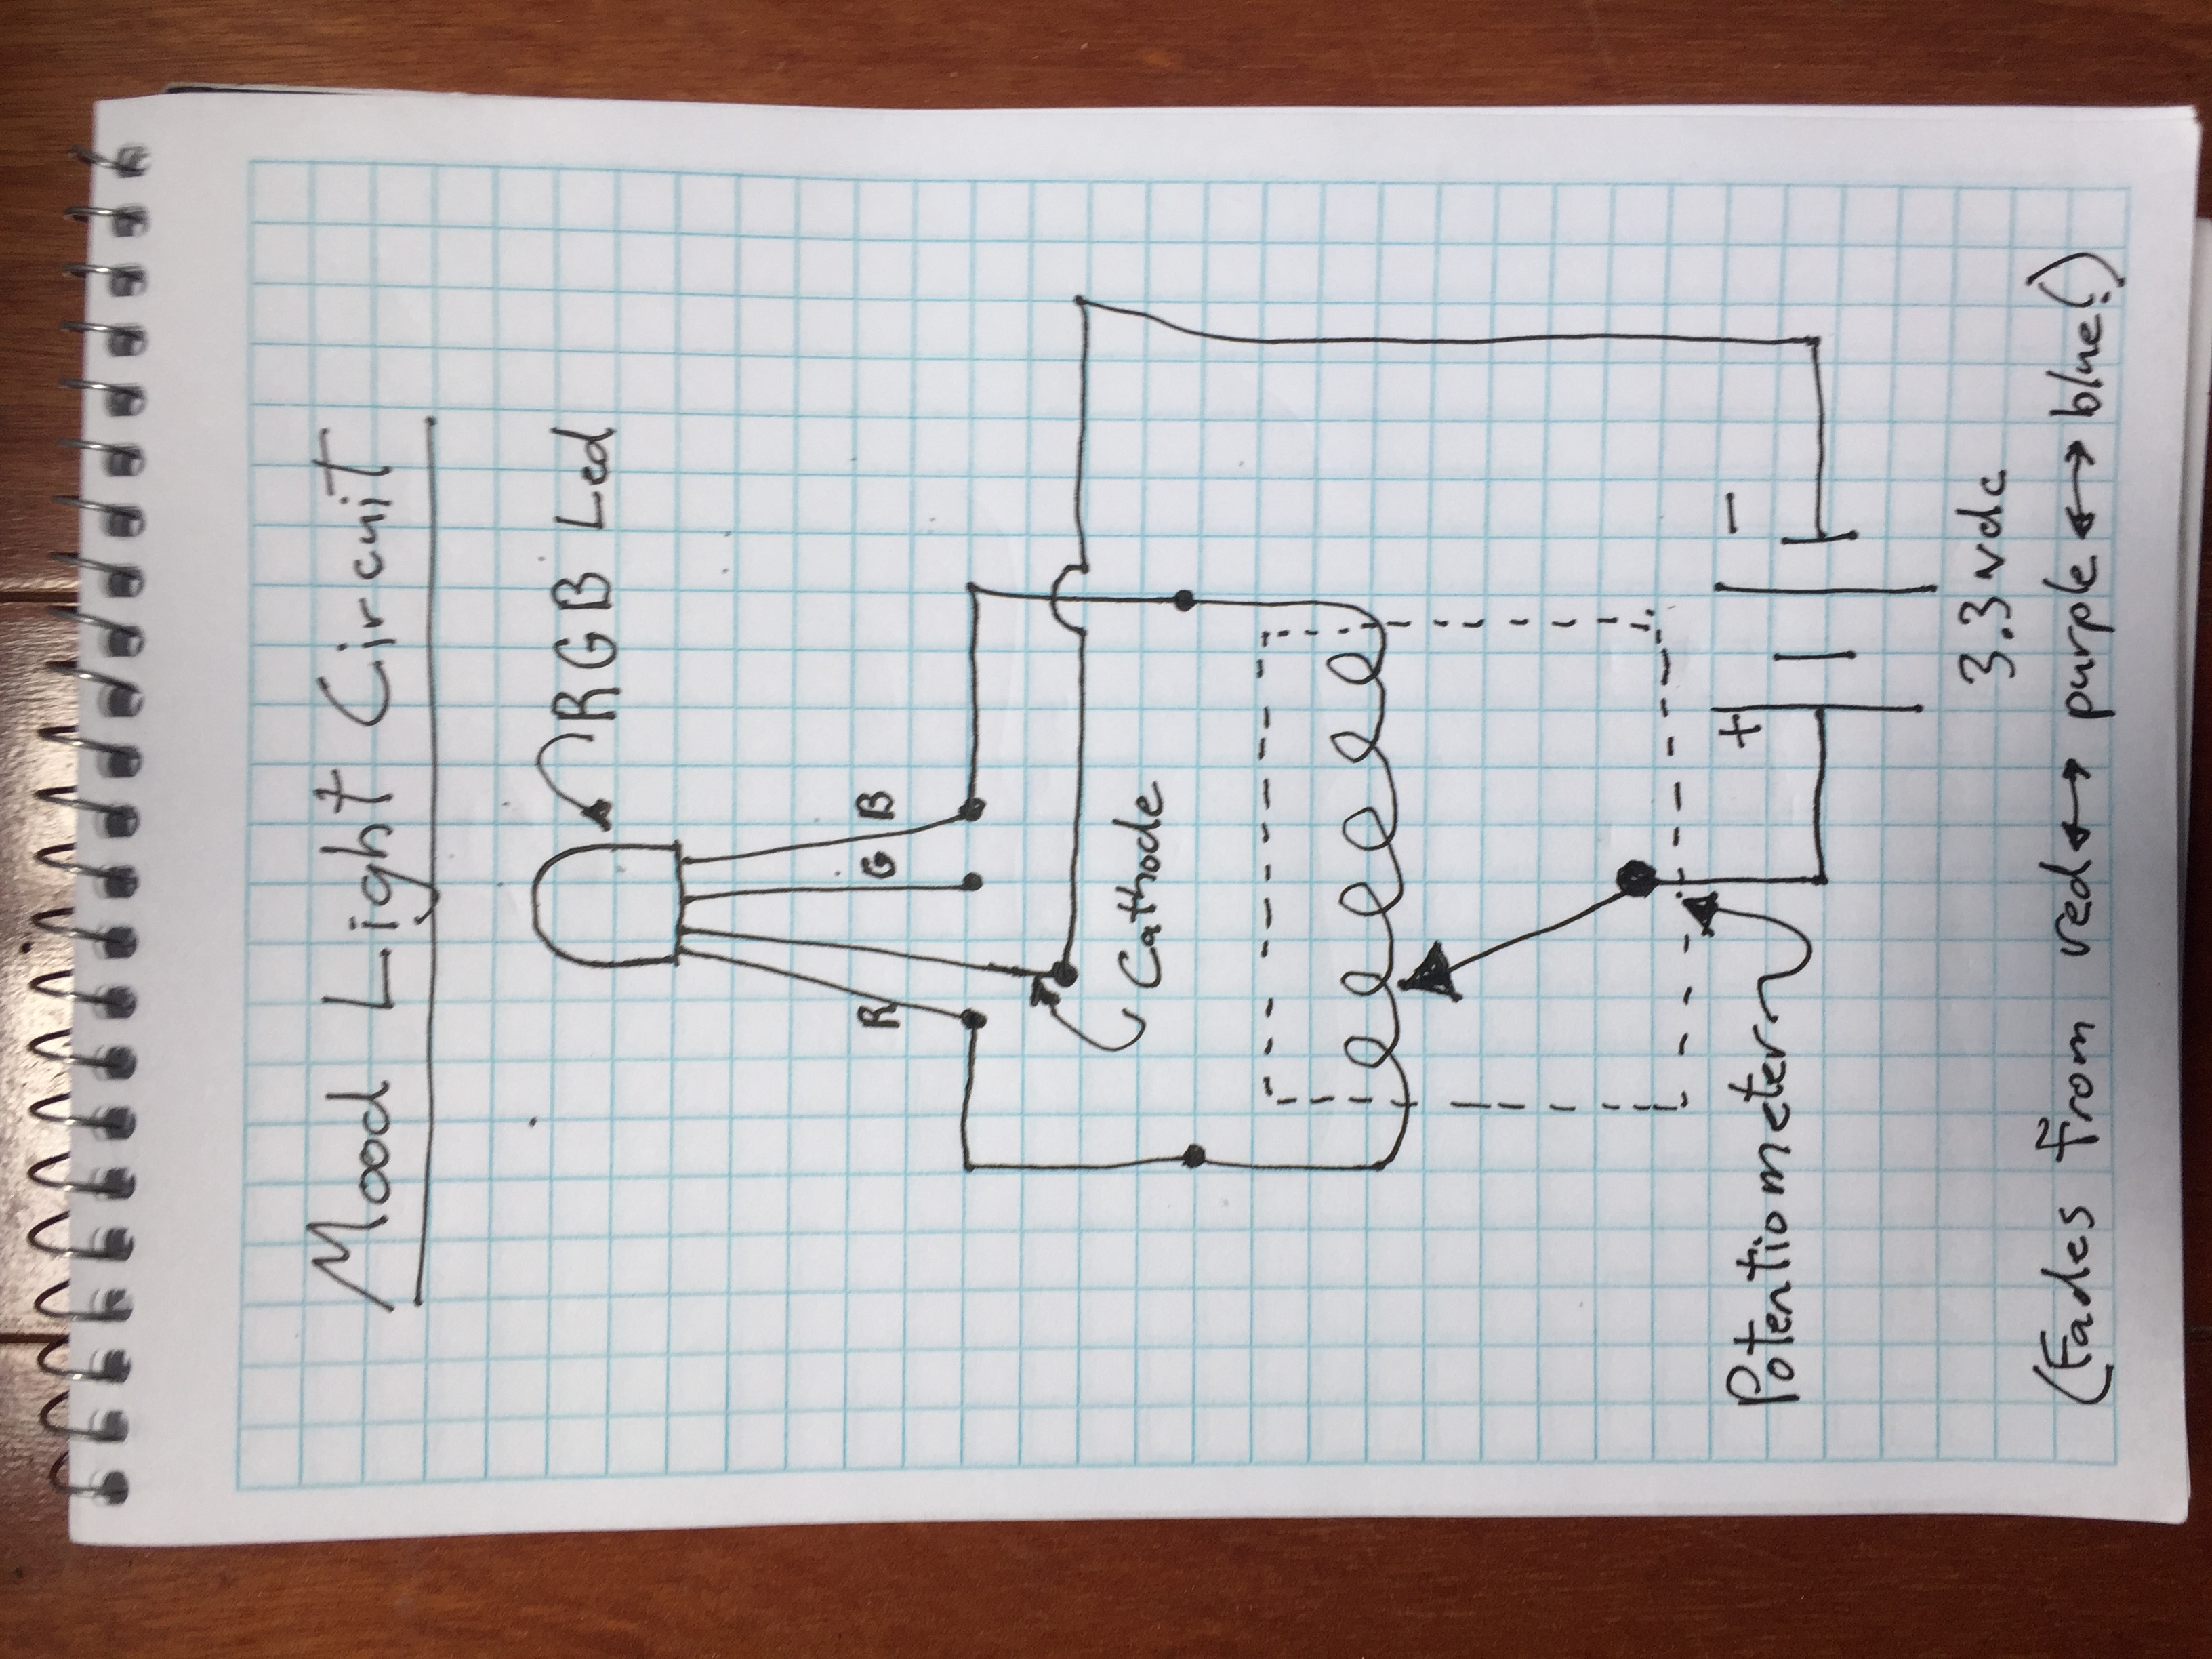 Mood Light Circuit
RGB Led
R G B
Cathode
Potentiometer
+ −
3.3 vdc
(Fades from red ↔ purple ↔ blue!)